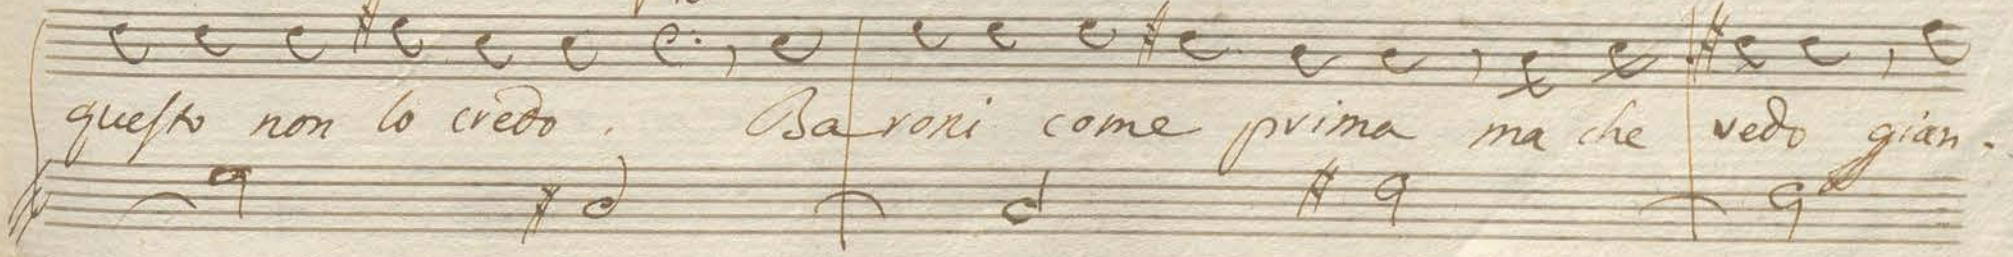 questo non lo credo. Baroni come prima ma che vedo gian-